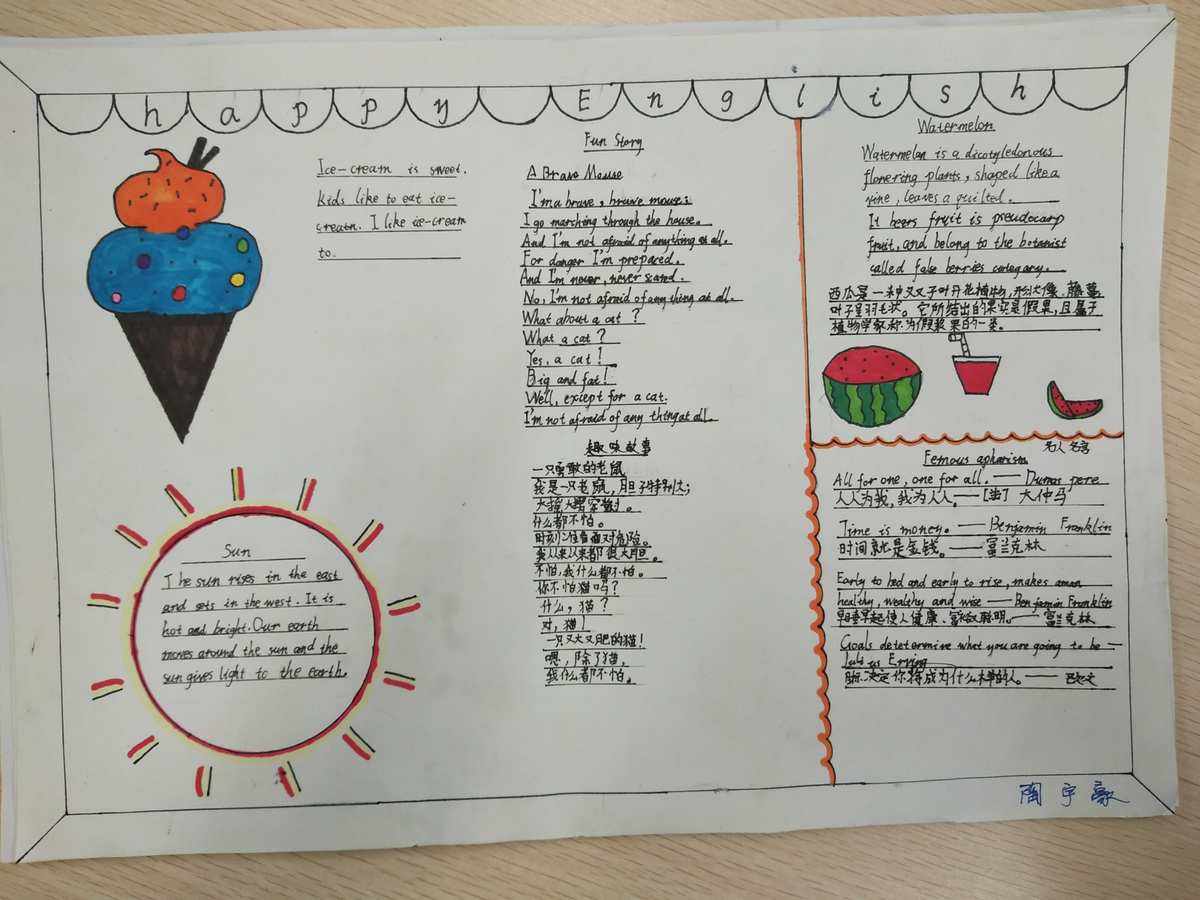 happy English
Ice-cream is sweet.
kids like to eat ice-
cream. I like ice-cream
to.
Fun Story
A Brave Mouse
I'm a brave, brave mouse.
I go marching through the house.
And I'm not afraid of anything at all.
For danger I'm prepared.
And I'm never, never scared.
No, I'm not afraid of any thing at all.
What about a cat?
What a cat?
Yes, a cat!
Big and fat!
Well, except for a cat.
I'm not afraid of any thing at all.
趣味故事
一只勇敢的老鼠
我是一只老鼠，胆子特别大；
大摇大摆家散。
什么都不怕。
时刻准备面对危险。
我从来从来都很大胆。
不怕，我什么都不怕。
你不怕猫吗？
什么，猫？
对，猫！
一只又大又肥的猫！
嗯，除了猫，
我什么都不怕。
Sun
The sun rises in the east
and sets in the west. It is
hot and bright. Our earth
moves around the sun and the
sun gives light to the earth.
Watermelon
Watermelon is a dicotyledonous
flowering plants, shaped like a
vine, leaves a quilted.
It bears fruit is pseudocarp
fruit, and belong to the botanist
called false berries category.
西瓜是一种双子叶开花植物，形状像藤蔓，
叶子呈羽毛状。它所结出的果实是假果，且属于
植物学家称为假浆果的一类。
Femous apharism 名人名言
All for one, one for all. — Dumas pere
人人为我，我为人人—[法] 大仲马
Time is money. — Benjamin Franklin
时间就是金钱。— 富兰克林
Early to bed and early to rise, makes a man
healthy, wealthy and wise — Benjamin Franklin
早睡早起使人健康、富裕又聪明。— 富兰克林
Goals detetermine what you are going to be —
Erving
目标决定你将成为什么样的人。— 欧文
陶宇豪